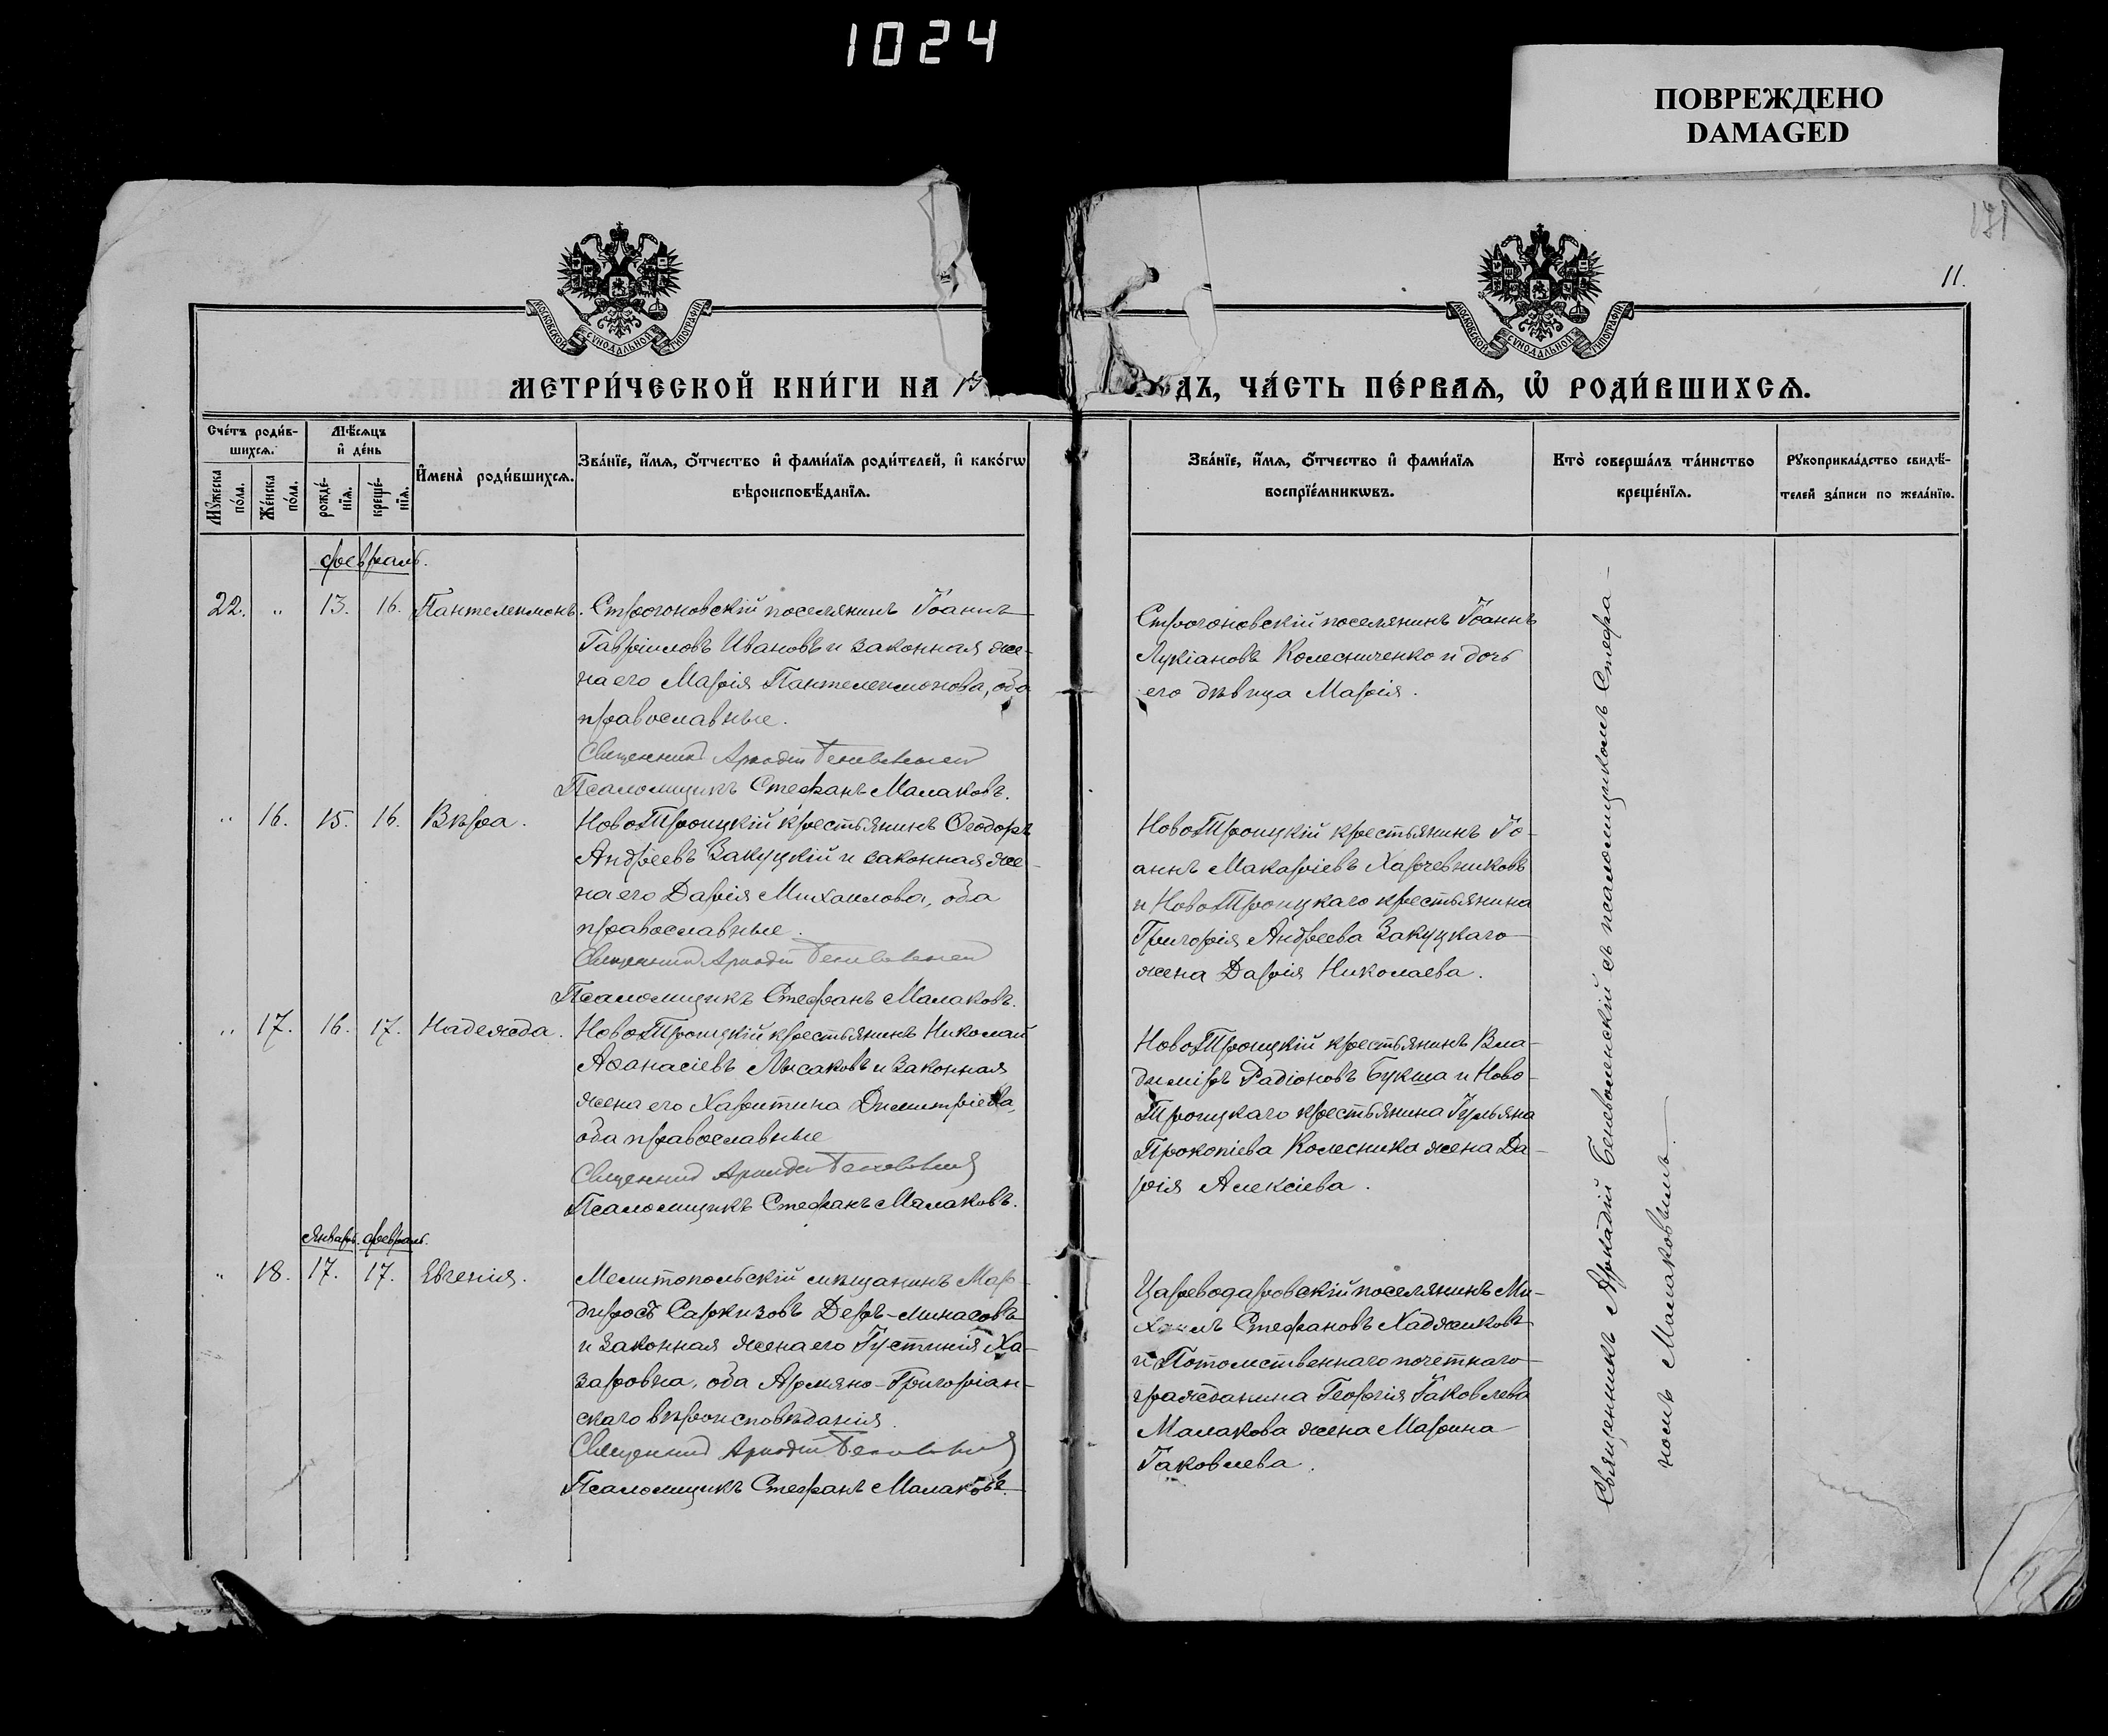 1024
ПОВРЕЖДЕНО
DAMAGED
171
11.
МОСКОВСКОЙ СѴНОДАЛЬНОЙ ТИПОГРАФІИ
МОСКОВСКОЙ СѴНОДАЛЬНОЙ ТИПОГРАФІИ
МЕТРИ́ЧЕСКОЙ КНИ́ГИ НА 19
ДЪ, ЧА́СТЬ ПЕ́РВАЯ, Ѡ҆ РОДИ́ВШИХСЯ.
Сче́тъ роди́в-
шихся.
Мꙋ́жеска
по́ла.
Же́нска
по́ла.
Мѣ́сяцъ
и҆ де́нь
рожде́-
нїя.
креще́-
нїя.
И҆мена̀ роди́вшихся.
Зва́нїе, и҆́мя, ѻ҆́тчество и҆ фами́лїя роди́телей, и҆ како́гѡ
вѣроисповѣ́данїя.
Зва́нїе, и҆́мя, ѻ҆́тчество и҆ фами́лїя
воспрїе́мникѡвъ.
Кто̀ соверша́лъ та́инство
креще́нїя.
Рꙋкоприкла́дство свидѣ́-
телей за́писи по жела́нїю.
февраль.
22. " 13. 16. Пантелеимонъ. Строгоновскій поселянинъ Іоаннъ
Гавріиловъ Ивановъ и законная же-
на его Марія Пантелеимонова, оба
православные.
Священникъ Аркадій Беневоленскій
Псаломщикъ Стефанъ Малаковъ.
Строгоновскій поселянинъ Іоаннъ
Лукіановъ Колесниченко и дочь
его дѣвица Марія.
" 16. 15. 16. Вѣра. НовоТроицкій крестьянинъ Ѳеодоръ
Андреевъ Закуцкій и законная же-
на его Дарія Михаилова, оба
православные.
Священникъ Аркадій Беневоленскій
Псаломщикъ Стефанъ Малаковъ.
НовоТроицкій крестьянинъ Іо-
аннъ Макаріевъ Харчевниковъ
и НовоТроицкаго крестьянина
Григорія Андреева Закуцкаго
жена Дарія Николаева.
" 17. 16. 17. Надежда. НовоТроицкій крестьянинъ Николай
Аѳанасіевъ Лысаковъ и законная
жена его Харитина Димитріева,
оба православные
Священникъ Аркадій Беневоленскій
Псаломщикъ Стефанъ Малаковъ.
НовоТроицкій крестьянинъ Вла-
диміръ Радіоновъ Букша и Ново-
Троицкаго крестьянина Іульяна
Прокопіева Колесника жена Да-
рія Алексіева.
Январь. февраль.
" 18. 17. 17. Евгенія. Мелитопольскій мѣщанинъ Мар-
диросъ Саркизовъ Деръ-Минасовъ
и законная жена его Іустинія Ха-
заровна, оба Армяно-Григоріан-
скаго вѣроисповѣданія.
Священникъ Аркадій Беневоленскій
Псаломщикъ Стефанъ Малаковъ.
Цареводаровскій поселянинъ Ми-
хаилъ Стефановъ Хаджиковъ
и Потомственнаго почетнаго
гражданина Георгія Іаковлева
Малакова жена Марина
Іаковлева.
Священникъ Аркадій Беневоленскій съ псаломщикомъ Стефа-
номъ Малаковымъ.